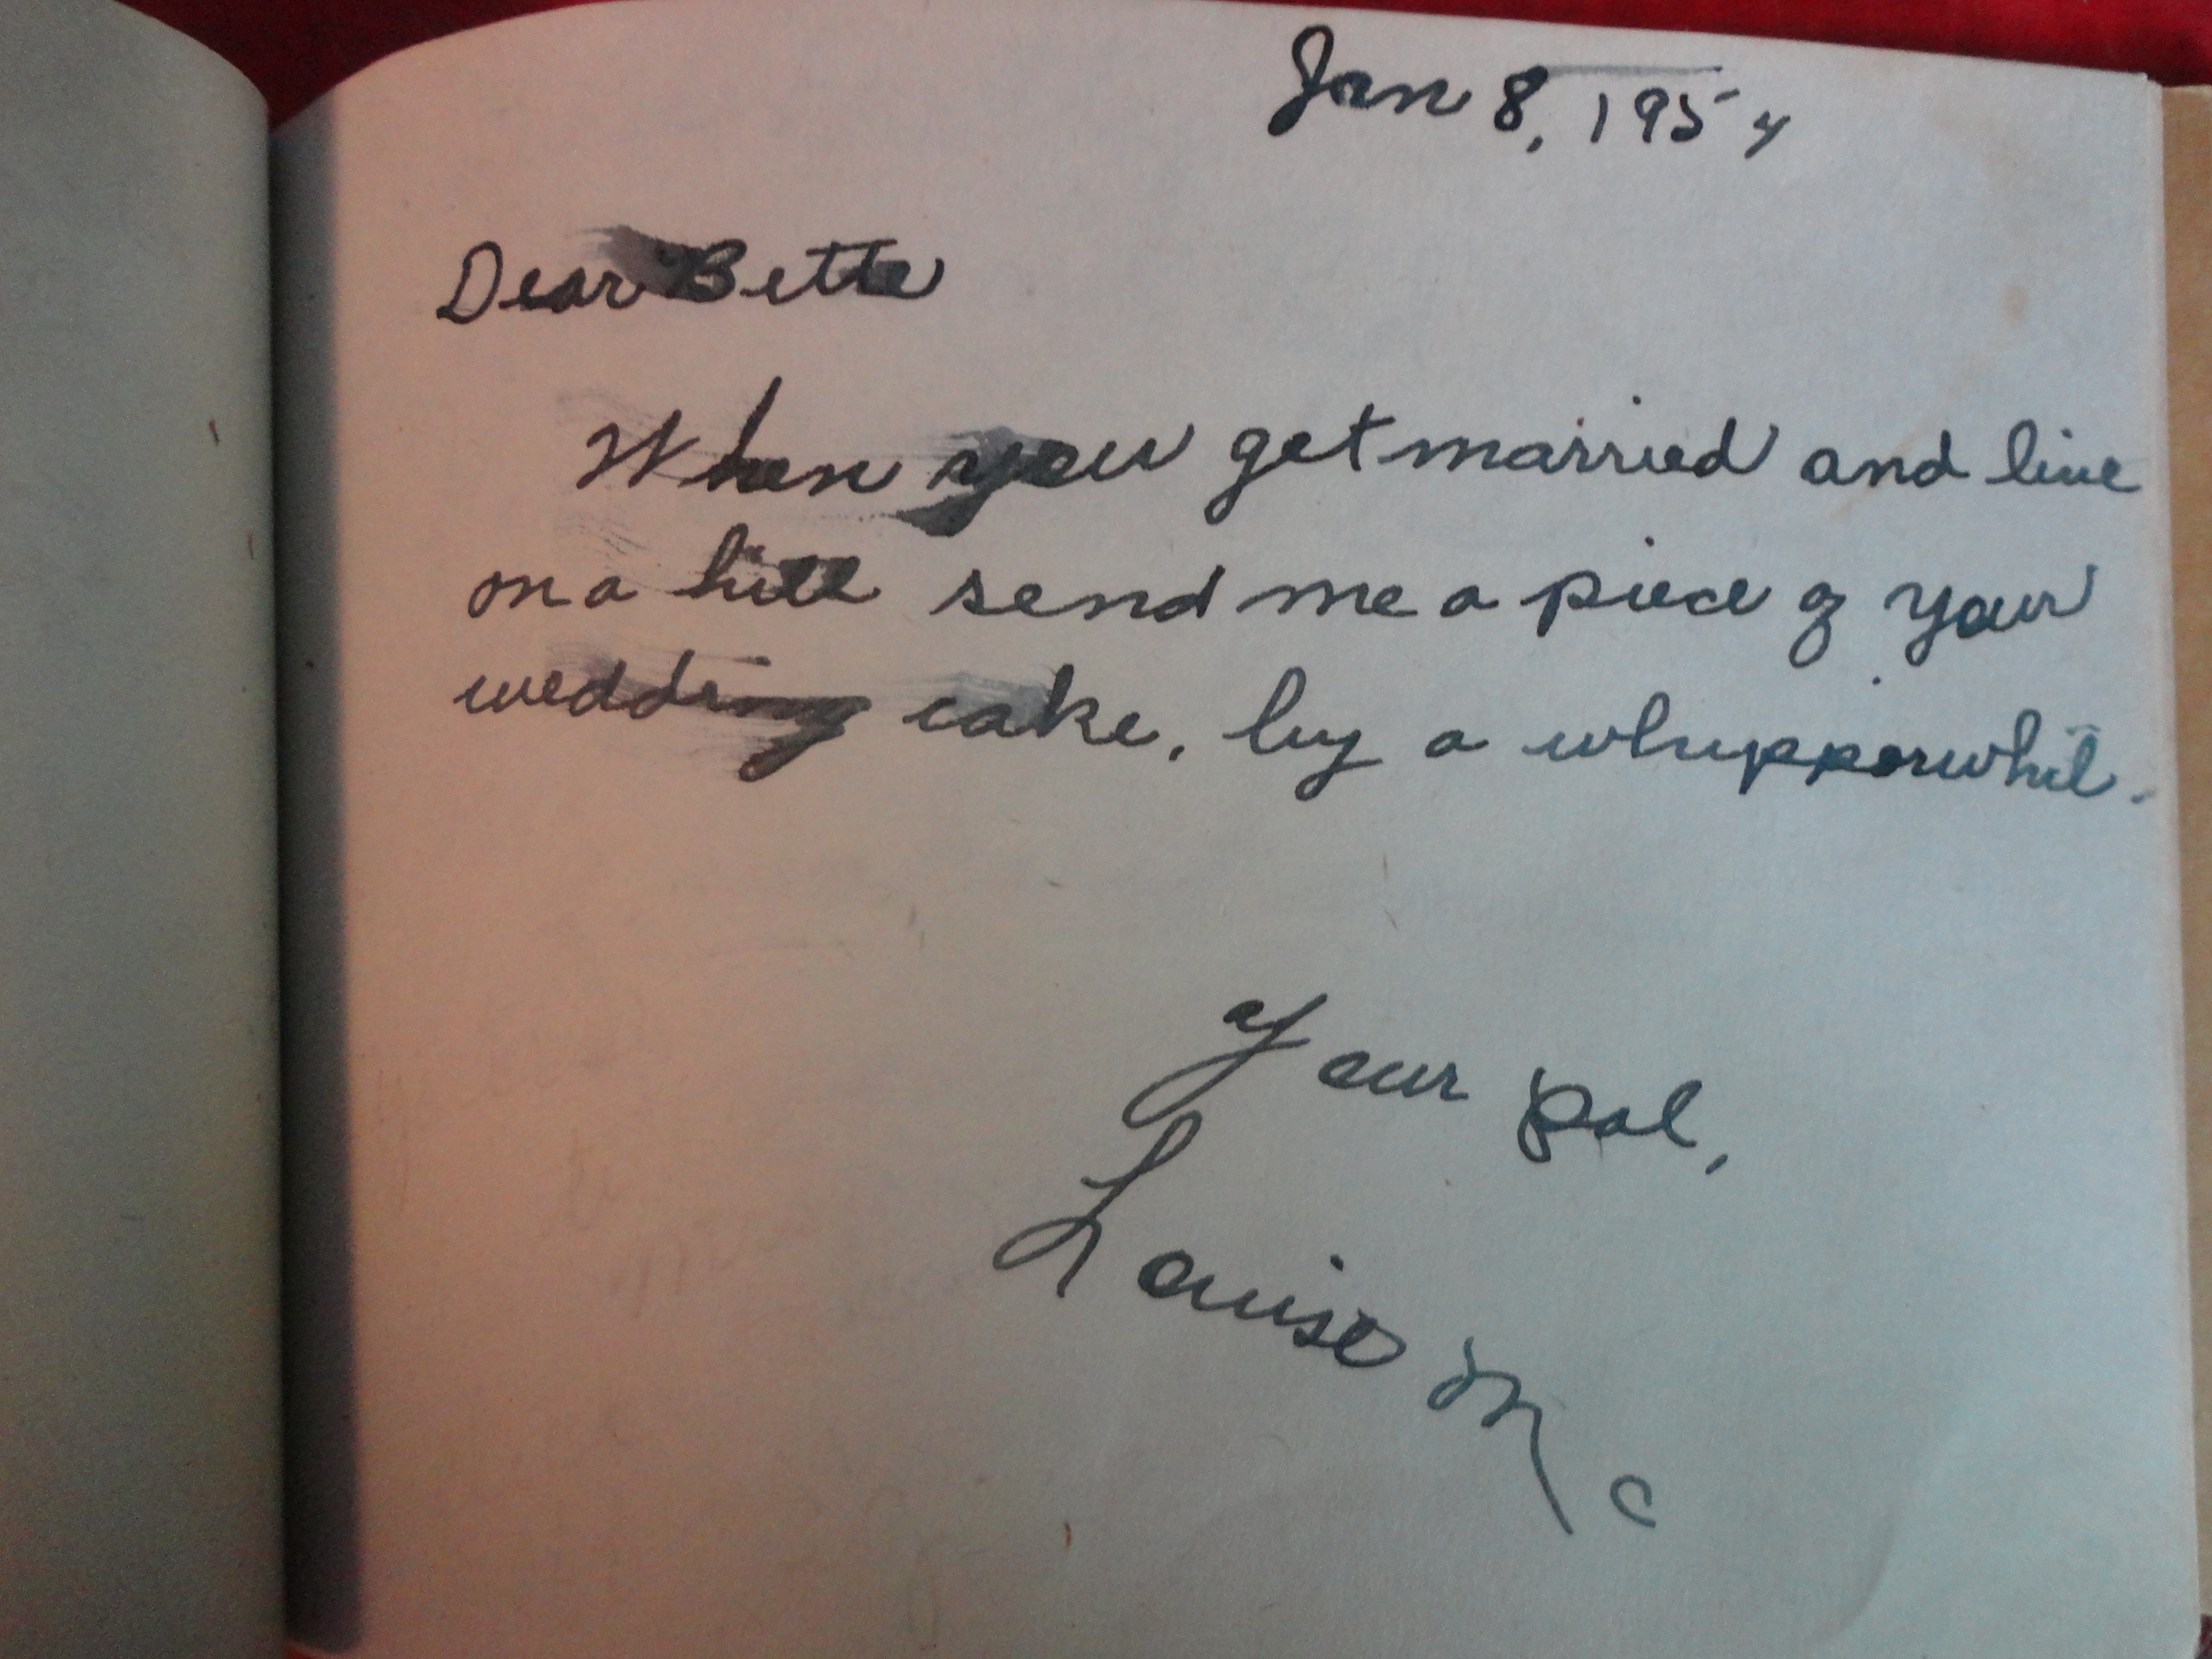 Jan 8, 1954
Dear Bette
When you get married and live
on a hill send me a piece of your
wedding cake, by a whupperwhil.
Your pal,
Louise Mc